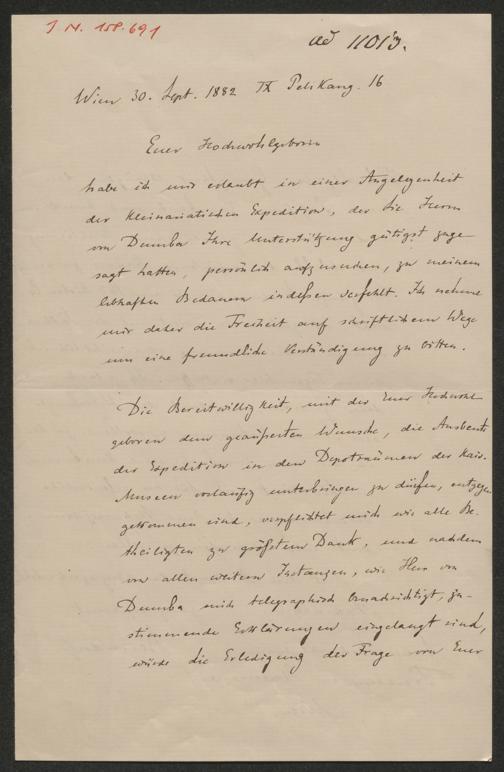 I. N. 158.691
ad 11013.
Wien 30. Sept. 1882 IX Pelikang. 16
Euer Hochwohlgeboren
habe ich mir erlaubt in einer Angelegenheit
der kleinasiatischen Expedition, der Sie Herrn
von Dumba Ihre Unterstützung gütigst zuge
sagt hatten, persönlich aufzusuchen, zu meinem
lebhaften Bedauern indeßen verfehlt. Ich nehme
mir daher die Freiheit auf schriftlichem Wege
um eine freundliche Verständigung zu bitten.
Die Bereitwilligkeit, mit der Euer Hochwohl
geboren dem geäußerten Wunsche, die Ausbeute
der Expedition in den Depoträumen der kais.
Museen vorläufig unterbringen zu dürfen, entgegen
gekommen sind, verpflichtet mich wie alle Be-
theiligten zu größtem Dank, und nachdem
von allen weitern Instanzen, wie Herr von
Dumba mich telegraphisch benachrichtigt, zu-
stimmende Erklärungen eingelangt sind,
würde die Erledigung der Frage von Euer